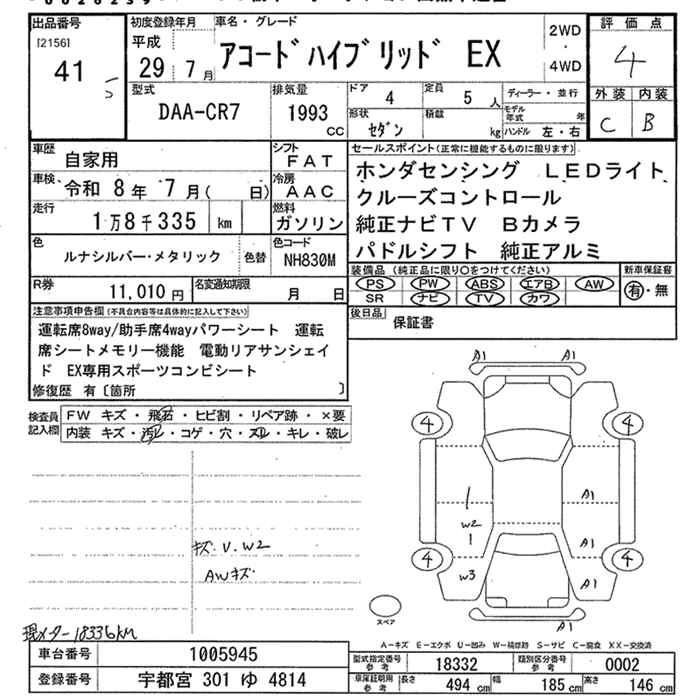 出品番号
[2156]
41
初度登録年月
平成
29年 7月
車名・グレード
アコードハイブリッド EX
2WD
・
4WD
評価点
4
外装 内装
C B
型式
DAA-CR7
排気量
1993
CC
ドア 4
定員 5人
形状 セダン
積載 kg
ディーラー・並行
モデル年式 年
ハンドル 左・右
車歴 自家用
シフト FAT
車検 令和 8年 7月( 日)
冷房 AAC
走行 1万8千335 km
燃料 ガソリン
色 ルナシルバー・メタリック
色替
色コード NH830M
R券 11,010円
名変通知期限 月 日
セールスポイント(正常に機能するものに限ります)
ホンダセンシング LEDライト
クルーズコントロール
純正ナビTV Bカメラ
パドルシフト 純正アルミ
装備品 (純正品に限り〇をつけてください)
新車保証書
PS PW ABS エアB AW
有・無
SR ナビ TV カワ
後日品 保証書
注意事項申告欄(不具合内容等は具体的に記入して下さい)
運転席8way/助手席4wayパワーシート 運転
席シートメモリー機能 電動リアサンシェイ
ド EX専用スポーツコンビシート
修復歴 有〔箇所 〕
検査員記入欄
FW キズ・飛石・ヒビ割・リペア跡・×要
内装 キズ・汚レ・コゲ・穴・スレ・キレ・破レ
キズ・V・W2
AWキズ
現メーター18336KM
A1 A1
4 4
A1
W2
A1
W3
A1
4 4
A1
スペア
A-キズ E-エクボ U-凹み W-補修跡 S-サビ C-腐食 XX-交換済
車台番号 1005945
登録番号 宇都宮 301 ゆ 4814
型式指定番号参考 18332
類別区分番号参考 0002
車庫証明用参考
長さ 494 cm
幅 185 cm
高さ 146 cm